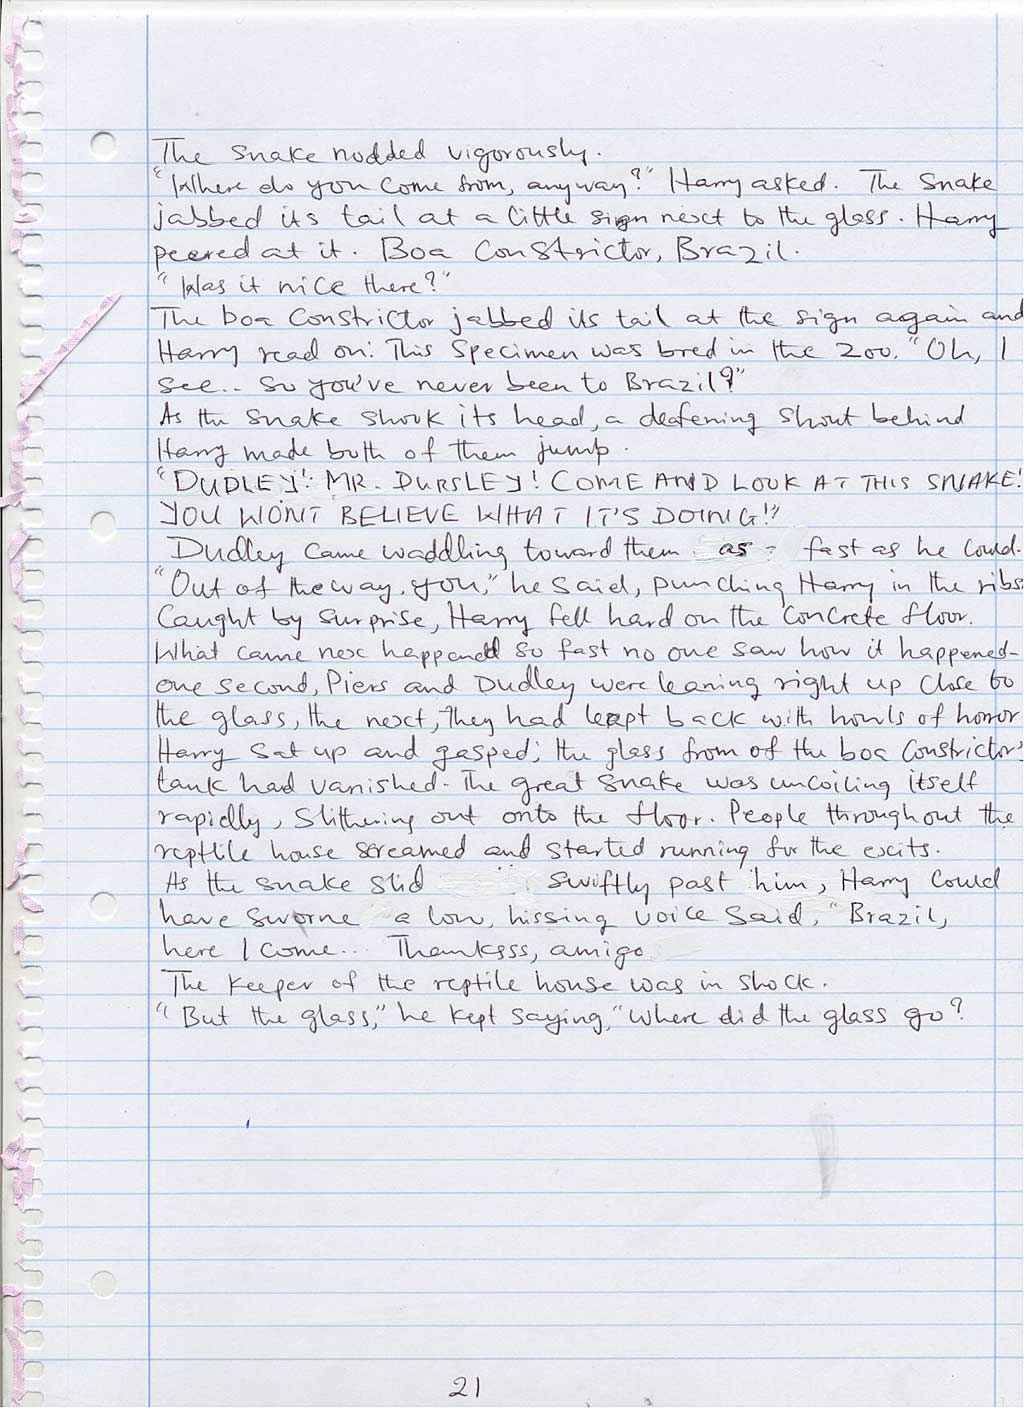 The snake nodded vigorously.
"Where do you come from, anyway?" Harry asked. The snake
jabbed its tail at a little sign next to the glass. Harry
peered at it. Boa Constrictor, Brazil.
"Was it nice there?"
The boa constrictor jabbed its tail at the sign again and
Harry read on: This specimen was bred in the zoo. "Oh, I
see.. so you've never been to Brazil?"
As the snake shook its head, a deafening shout behind
Harry made both of them jump.
"DUDLEY! MR. DURSLEY! COME AND LOOK AT THIS SNAKE!
YOU WON'T BELIEVE WHAT IT'S DOING!"
Dudley came waddling toward them as fast as he could.
"Out of the way, you," he said, punching Harry in the ribs
Caught by surprise, Harry fell hard on the concrete floor.
What came nex happened so fast no one saw how it happened-
one second, Piers and Dudley were leaning right up close to
the glass, the next, they had leapt back with howls of horror
Harry sat up and gasped; the glass from of the boa constrictor's
tank had vanished. The great snake was uncoiling itself
rapidly, slithering out onto the floor. People throughout the
reptile house screamed and started running for the exits.
As the snake slid swiftly past him, Harry could
have sworne a low, hissing voice said, "Brazil,
here I come... Thanksss, amigo
The keeper of the reptile house was in shock.
"But the glass," he kept saying, "where did the glass go?
21